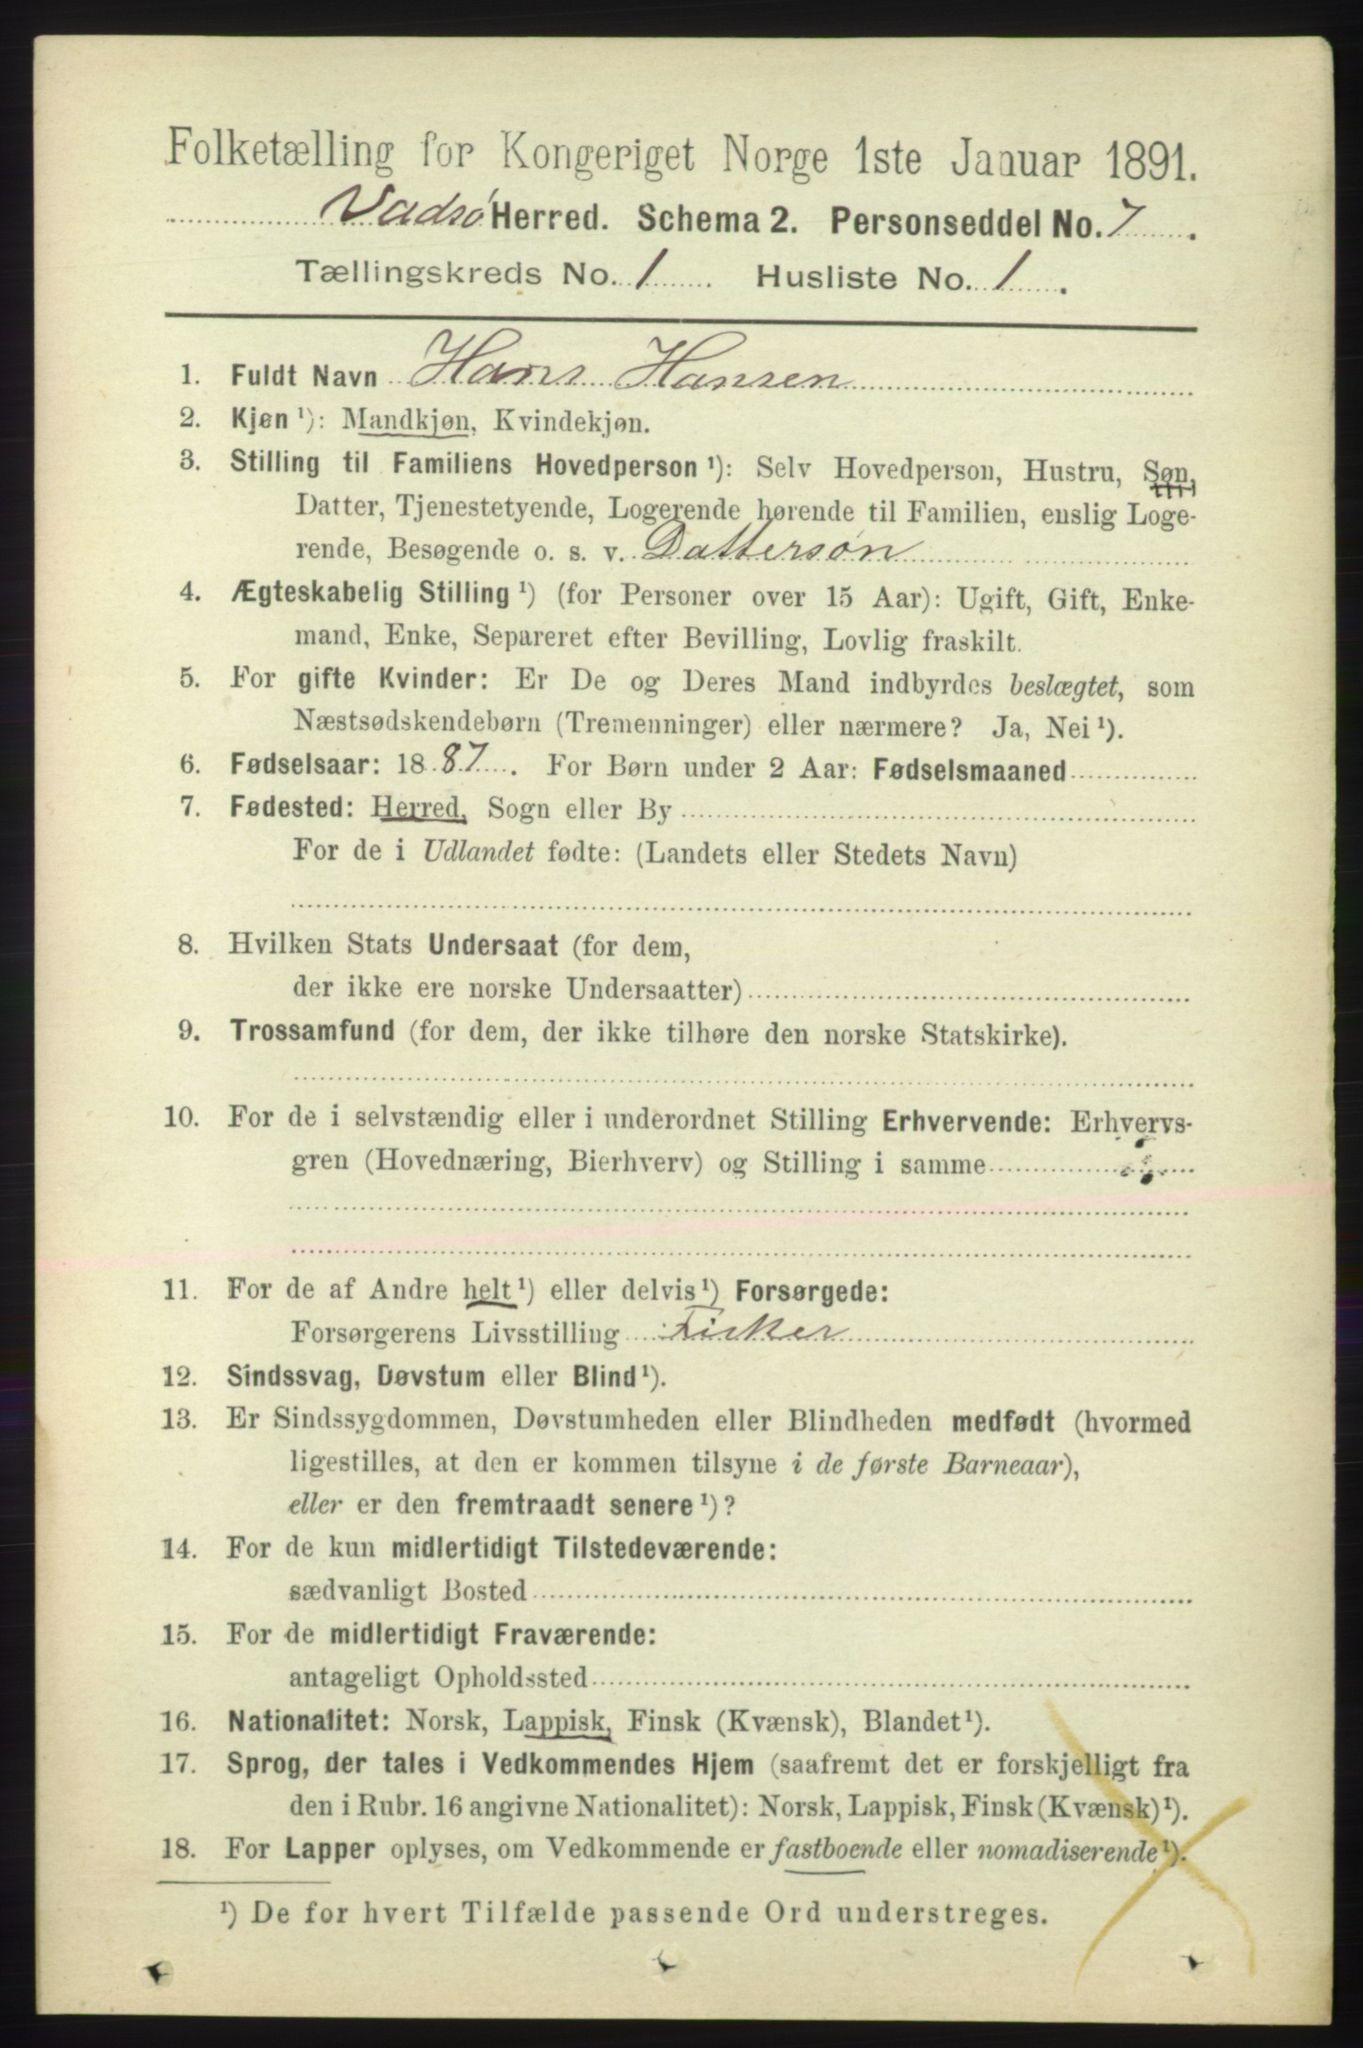 Folketælling for Kongeriget Norge 1ste Januar 1891.
Vadsø Herred. Schema 2. Personseddel No. 7.
Tællingskreds No. 1 Husliste No. 1.
1. Fuldt Navn Hans Hansen
2. Kjøn ¹): Mandkjøn, Kvindekjøn.
3. Stilling til Familiens Hovedperson ¹): Selv Hovedperson, Hustru, Søn,
Datter, Tjenestetyende, Logerende hørende til Familien, enslig Loge-
rende, Besøgende o. s. v. Dattersøn
4. Ægteskabelig Stilling ¹) (for Personer over 15 Aar): Ugift, Gift, Enke-
mand, Enke, Separeret efter Bevilling, Lovlig fraskilt.
5. For gifte Kvinder: Er De og Deres Mand indbyrdes beslægtet, som
Næstsødskendebørn (Tremenninger) eller nærmere? Ja, Nei ¹).
6. Fødselsaar: 1887. For Børn under 2 Aar: Fødselsmaaned
7. Fødested: Herred, Sogn eller By
For de i Udlandet fødte: (Landets eller Stedets Navn)
8. Hvilken Stats Undersaat (for dem,
der ikke ere norske Undersaatter)
9. Trossamfund (for dem, der ikke tilhøre den norske Statskirke).
10. For de i selvstændig eller i underordnet Stilling Erhvervende: Erhvervs-
gren (Hovednæring, Bierhverv) og Stilling i samme
11. For de af Andre helt ¹) eller delvis ¹) Forsørgede:
Forsørgerens Livsstilling Fisker
12. Sindssvag, Døvstum eller Blind ¹).
13. Er Sindssygdommen, Døvstumheden eller Blindheden medfødt (hvormed
ligestilles, at den er kommen tilsyne i de første Barneaar),
eller er den fremtraadt senere ¹)?
14. For de kun midlertidigt Tilstedeværende:
sædvanligt Bosted
15. For de midlertidigt Fraværende:
antageligt Opholdssted
16. Nationalitet: Norsk, Lappisk, Finsk (Kvænsk), Blandet ¹).
17. Sprog, der tales i Vedkommendes Hjem (saafremt det er forskjelligt fra
den i Rubr. 16 angivne Nationalitet): Norsk, Lappisk, Finsk (Kvænsk) ¹).
18. For Lapper oplyses, om Vedkommende er fastboende eller nomadiserende ¹).
¹) De for hvert Tilfælde passende Ord understreges.